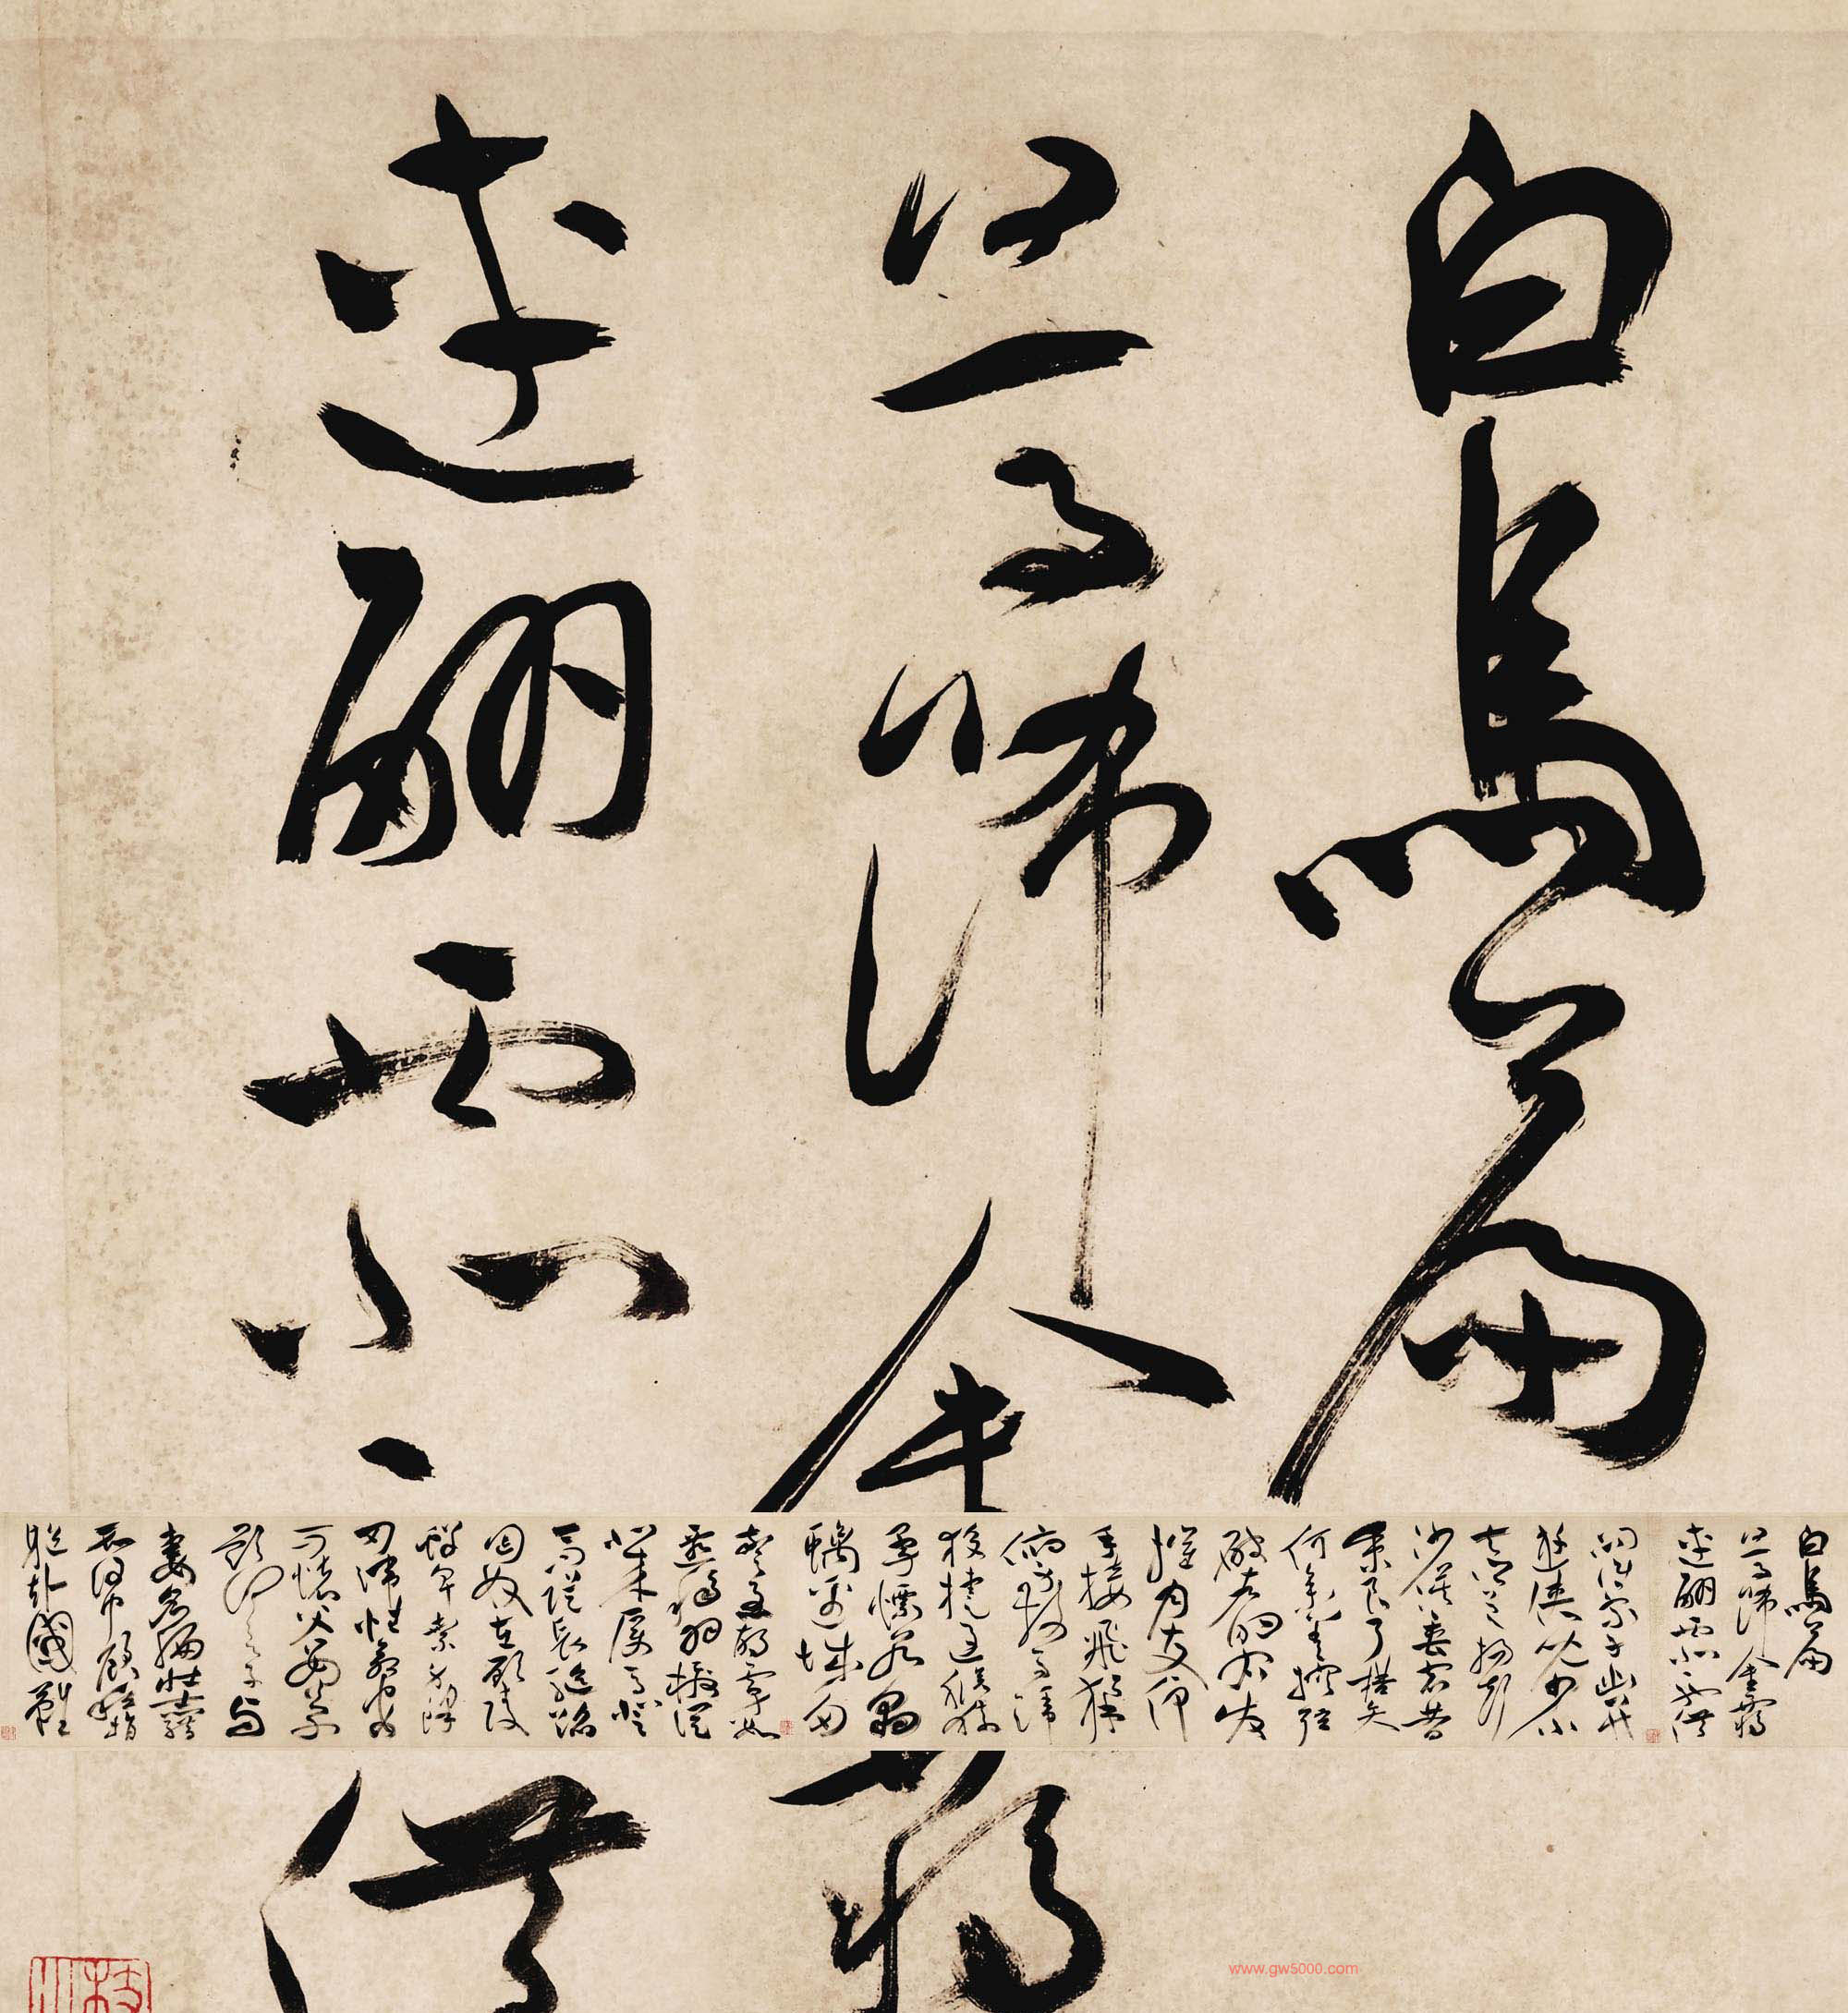 白馬篇
白馬飾金羈
連翩西北馳
白馬篇
白馬飾金羈
連翩西北馳
問誰家子幽并
遊俠兒少小
去鄉邑揚聲
沙漠垂宿昔
秉良弓楛矢
何參差控弦
破左的右發
摧月支仰
手接飛猱
俯身散馬蹄
狡捷過猴猿
勇剽若豹
螭邊城多
警急胡虜數
遷移羽檄從
北來厲馬登
高堤長驅蹈
匈奴左顧陵
鮮卑棄身鋒
刃端性命安
可懷父母
顧何言子與
妻名編壯士籍
不得中顧私捐
軀赴國難
www.gw5000.com